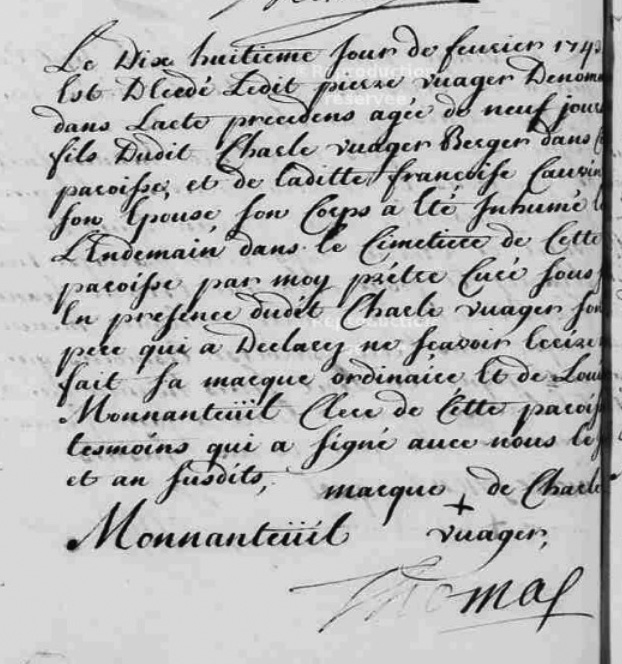 Le Dix huitieme jour de feurier 174
Est Decedé Ledit pierre vuager Denom
dans Lacte precedens agée de neuf jours
fils Dudit Charle vuager Berger dans
paroisse, et de laditte françoise Cauzin
son Epouse, son Corps a été Inhumé l
L'Endemain dans le Cimetiere de Cette
paroisse par moy prêtre Curé sous
En presence dudit Charle vuager son
pere qui a Declarez ne sçavoir Ecrire
fait sa marque ordinaire Et de Loui
Monnanteüil Clerc de Cette parois
tesmoins qui a signé avec nous les
et an susdits,
marque de Charle
+
Monnanteüil vuager,
Thomas
© Reproduction
réservée
Reproduction